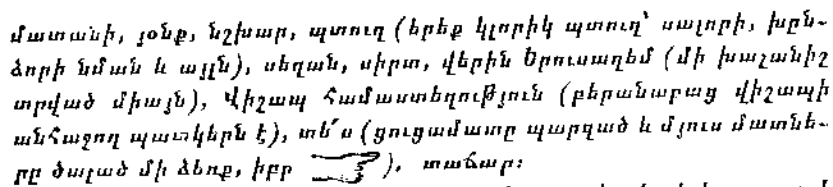 մատանի, յօնք, նշխար, պտուղ (երեք կլորիկ պտուղ՝ սալորի, խըն-
ձորի նման և այլն), սեղան, սիրտ, վերին Երուսաղեմ (մի խաչանիշ
տրված միայն), Վիշապ Համաստեղություն (բերանաբաց վիշապի
անհաջող պատկերն է), տե՛ս (ցուցամատը պարզած և մյուս մատնե-
րը ծալած մի ձեռք, իբր ), տաճար։